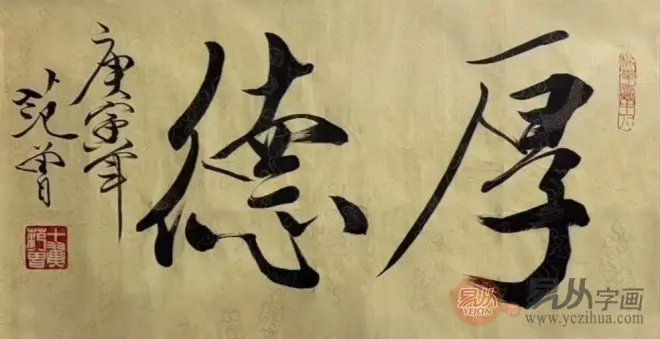 厚德
庚寅年
范曾
十翼范曾
易从
YEJON
易从字画
www.yczihua.com